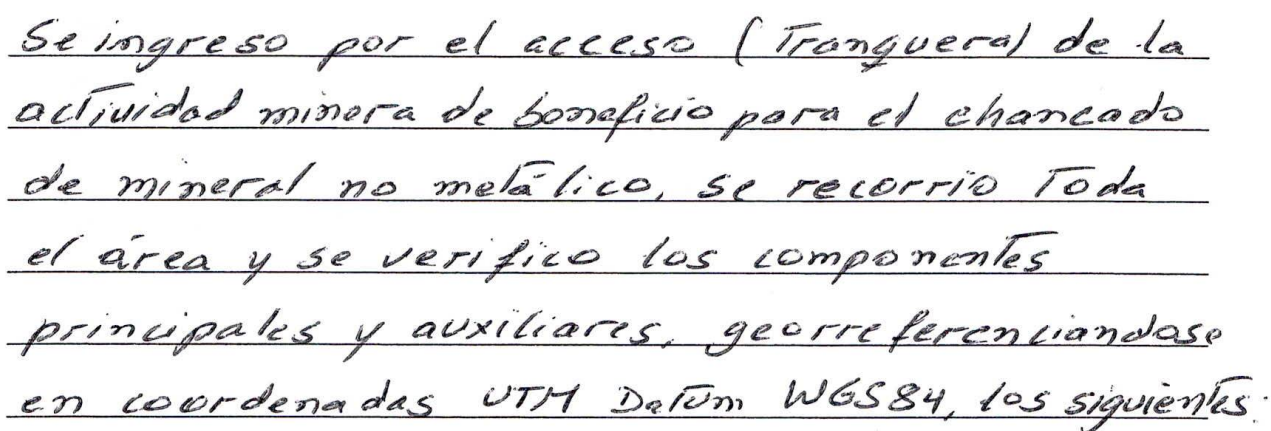 Se ingreso por el acceso (Tranquera) de la
actividad minera de beneficio para el chancado
de mineral no metálico, se recorrio Toda
el área y se verifico los componentes
principales y auxiliares, georreferenciandose
en coordenadas UTM Datum WGS84, los siguientes: